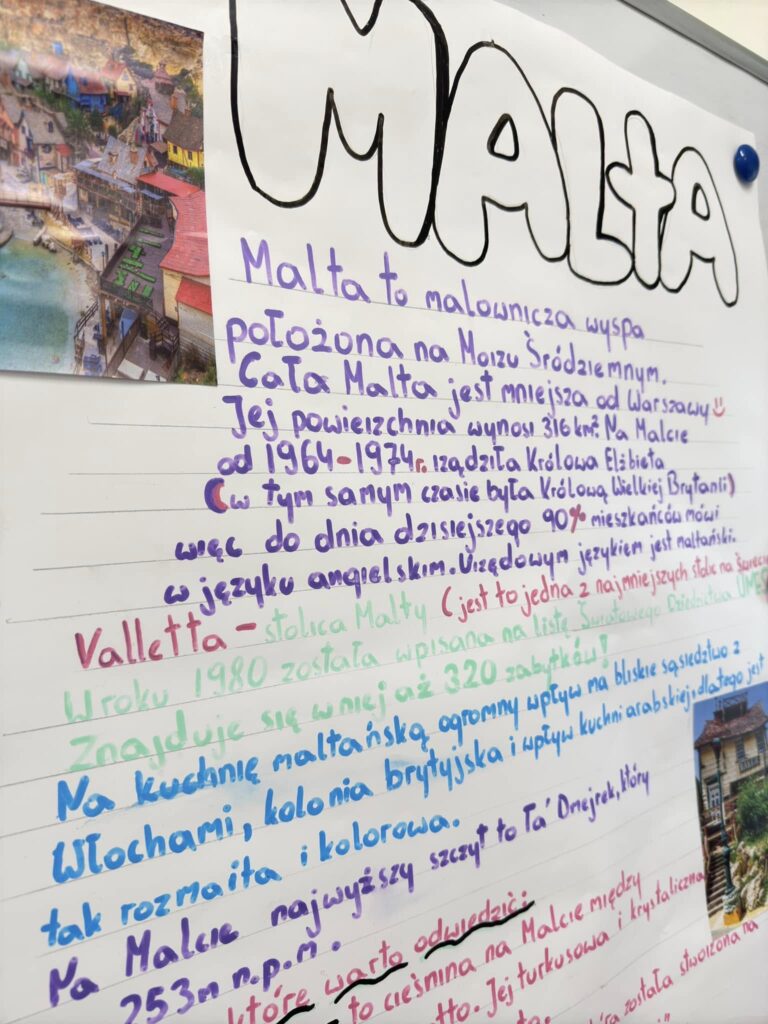 MALtA
Malta to malownicza wyspa
położona na Morzu Śródziemnym.
Cała Malta jest mniejsza od Warszawy
Jej powierzchnia wynosi 316 km². Na Malcie
od 1964-1974r. rządziła Królowa Elżbieta
(w tym samym czasie była Królową Wielkiej Brytanii)
więc do dnia dzisiejszego 90% mieszkańców mówi
w języku angielskim. Urzędowym językiem jest maltański.
Valletta - stolica Malty (jest to jedna z najmniejszych stolic na
W roku 1980 została wpisana na listę Światowego Dziedzictwa
Znajduje się w niej aż 320 zabytków!
Na kuchnię maltańską ogromny wpływ ma bliskie sąsiedztwo z
Włochami, kolonia brytyjska i wpływ kuchni arabskiej, dlatego jest
tak rozmaita i kolorowa.
Na Malcie najwyższy szczyt to Ta' Dmejrek, który
253m n.p.m.
które warto odwiedzić:
to cieśnina na Malcie między
Jej turkusowa i krystaliczna
została stworzona na